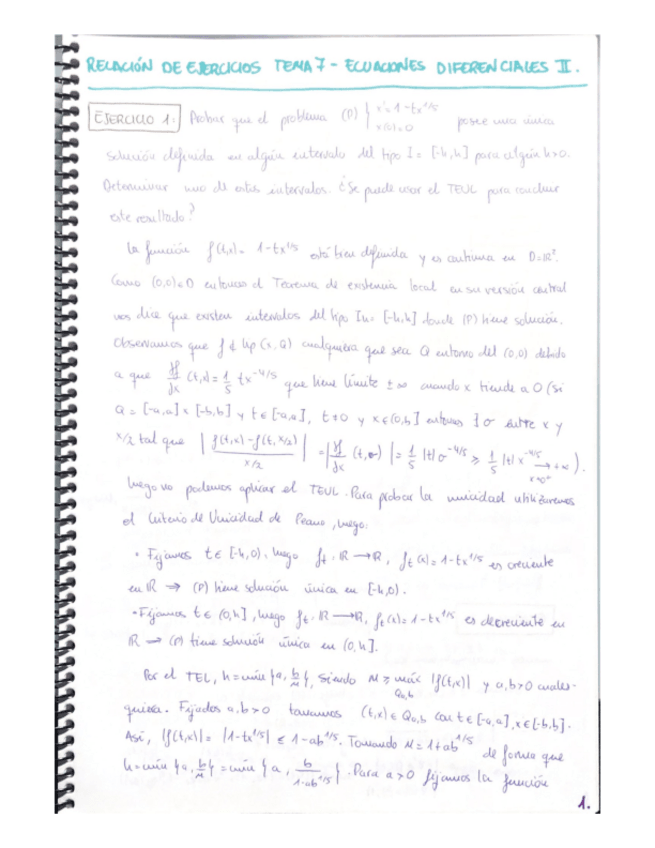 RELACIÓN DE EJERCICIOS TEMA 7 - ECUACIONES DIFERENCIALES II.
EJERCICIO 1: Probar que el problema (P) { x' = 1 - tx^1/5
x(0) = 0 posee una única
solución definida en algún intervalo del tipo I = [-h,h] para algún h>0.
Determinar uno de estos intervalos. ¿Se puede usar el TEUL para concluir
este resultado?
La función f(t,x) = 1 - tx^1/5 está bien definida y es continua en D = ℝ².
Como (0,0) ∈ D entonces el Teorema de existencia local en su versión central
nos dice que existen intervalos del tipo Iₕ = [-h,h] donde (P) tiene solución.
Observamos que f ∉ Lip (x, Q) cualquiera que sea Q entorno del (0,0) debido
a que ∂f/∂x (t,x) = 1/5 tx^-4/5 que tiene límite ±∞ cuando x tiende a 0 (si
Q = [-a,a] x [-b,b] y t ∈ [-a,a], t≠0 y x ∈ (0,b] entonces ∃ σ entre x y
x/2 tal que | f(t,x) - f(t,x/2) / x/2 | = | ∂f/∂x (t,σ) | = 1/5 |t| σ^-4/5 ≥ 1/5 |t| x^-4/5 → +∞ ).
x→0⁺
luego no podemos aplicar el TEUL. Para probar la unicidad utilizaremos
el Criterio de Unicidad de Peano, luego:
• Fijamos t ∈ [-h,0), luego fₜ: ℝ → ℝ, fₜ(x) = 1 - tx^1/5 es creciente
en ℝ → (P) tiene solución única en [-h,0).
• Fijamos t ∈ (0,h], luego fₜ: ℝ → ℝ, fₜ(x) = 1 - tx^1/5 es decreciente en
ℝ → (P) tiene solución única en (0,h].
Por el TEL, h = mín {a, b/M}, siendo M ≥ máx |f(t,x)| y a,b>0 cuales-
Qa,b
quiera. Fijados a,b>0 tomamos (t,x) ∈ Qa,b con t ∈ [-a,a], x ∈ [-b,b].
Así, |f(t,x)| = |1 - tx^1/5| ≤ 1 - ab^1/5. Tomando M = 1 + ab^1/5 de forma que
h = mín {a, b/M} = mín {a, b/1-ab^1/5}. Para a>0 fijamos la función
1.